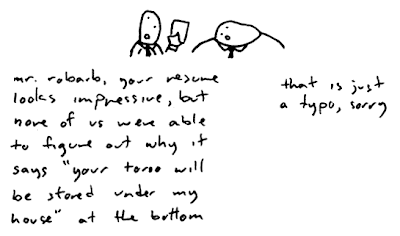 mr. robarb, your resume
looks impressive, but
none of us were able
to figure out why it
says "your torso will
be stored under my
house" at the bottom
that is just
a typo, sorry